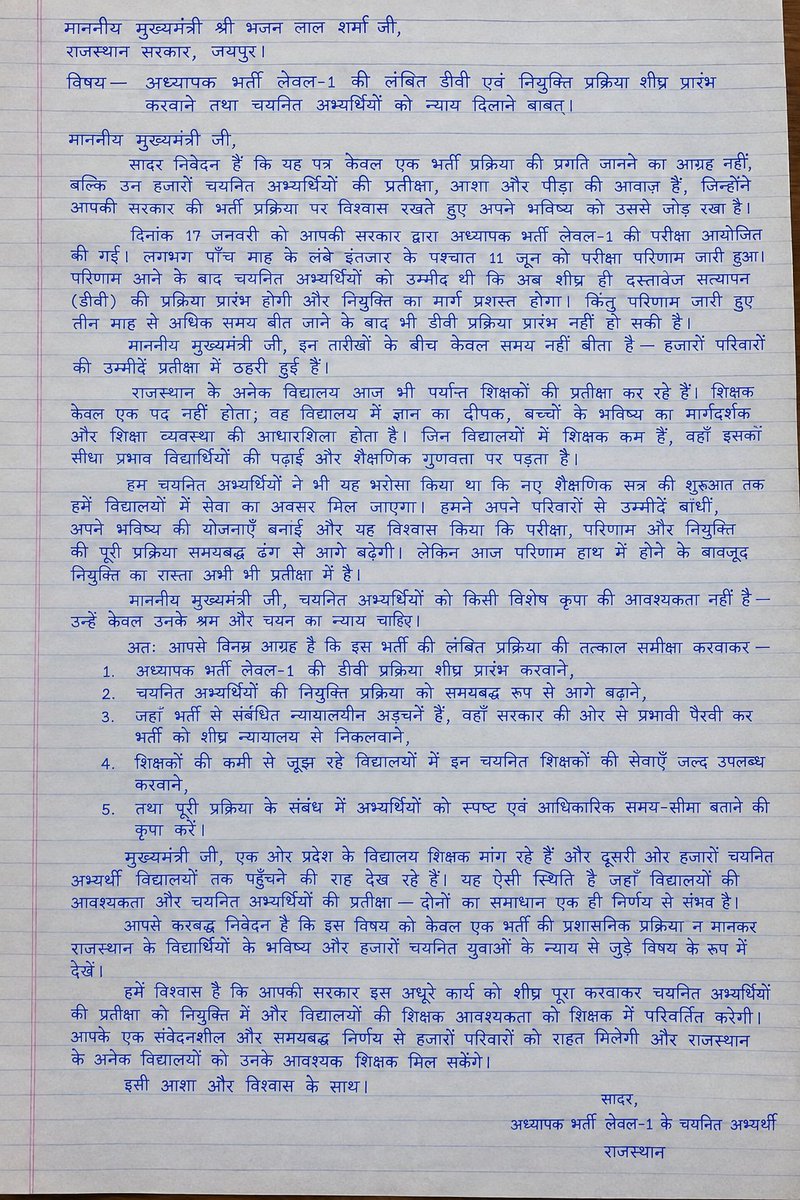 माननीय मुख्यमंत्री श्री भजन लाल शर्मा जी,
राजस्थान सरकार, जयपुर।
विषय — अध्यापक भर्ती लेवल-1 की लंबित डीवी एवं नियुक्ति प्रक्रिया शीघ्र प्रारंभ
करवाने तथा चयनित अभ्यर्थियों को न्याय दिलाने बाबत्।
माननीय मुख्यमंत्री जी,
सादर निवेदन हैं कि यह पत्र केवल एक भर्ती प्रक्रिया की प्रगति जानने का आग्रह नहीं,
बल्कि उन हजारों चयनित अभ्यर्थियों की प्रतीक्षा, आशा और पीड़ा की आवाज़ हैं, जिन्होंने
आपकी सरकार की भर्ती प्रक्रिया पर विश्वास रखते हुए अपने भविष्य को उससे जोड़ रखा है।
दिनांक 17 जनवरी को आपकी सरकार द्वारा अध्यापक भर्ती लेवल-1 की परीक्षा आयोजित
की गई। लगभग पाँच माह के लंबे इंतजार के पश्चात 11 जून को परीक्षा परिणाम जारी हुआ।
परिणाम आने के बाद चयनित अभ्यर्थियों को उम्मीद थी कि अब शीघ्र ही दस्तावेज सत्यापन
(डीवी) की प्रक्रिया प्रारंभ होगी और नियुक्ति का मार्ग प्रशस्त होगा। किंतु परिणाम जारी हुए
तीन माह से अधिक समय बीत जाने के बाद भी डीवी प्रक्रिया प्रारंभ नहीं हो सकी है।
माननीय मुख्यमंत्री जी, इन तारीखों के बीच केवल समय नहीं बीता है — हजारों परिवारों
की उम्मीदें प्रतीक्षा में ठहरी हुई हैं।
राजस्थान के अनेक विद्यालय आज भी पर्याप्त शिक्षकों की प्रतीक्षा कर रहे हैं। शिक्षक
केवल एक पद नहीं होता; वह विद्यालय में ज्ञान का दीपक, बच्चों के भविष्य का मार्गदर्शक
और शिक्षा व्यवस्था की आधारशिला होता है। जिन विद्यालयों में शिक्षक कम हैं, वहाँ इसका
सीधा प्रभाव विद्यार्थियों की पढ़ाई और शैक्षणिक गुणवत्ता पर पड़ता है।
हम चयनित अभ्यर्थियों ने भी यह भरोसा किया था कि नए शैक्षणिक सत्र की शुरुआत तक
हमें विद्यालयों में सेवा का अवसर मिल जाएगा। हमने अपने परिवारों से उम्मीदें बांधीं,
अपने भविष्य की योजनाएँ बनाईं और यह विश्वास किया कि परीक्षा, परिणाम और नियुक्ति
की पूरी प्रक्रिया समयबद्ध ढंग से आगे बढ़ेगी। लेकिन आज परिणाम हाथ में होने के बावजूद
नियुक्ति का रास्ता अभी भी प्रतीक्षा में है।
माननीय मुख्यमंत्री जी, चयनित अभ्यर्थियों को किसी विशेष कृपा की आवश्यकता नहीं है —
उन्हें केवल उनके श्रम और चयन का न्याय चाहिए।
अतः आपसे विनम्र आग्रह है कि इस भर्ती की लंबित प्रक्रिया की तत्काल समीक्षा करवाकर —
1. अध्यापक भर्ती लेवल-1 की डीवी प्रक्रिया शीघ्र प्रारंभ करवाने,
2. चयनित अभ्यर्थियों की नियुक्ति प्रक्रिया को समयबद्ध रूप से आगे बढ़ाने,
3. जहाँ भर्ती से संबंधित न्यायालयीन अड़चनें हैं, वहाँ सरकार की ओर से प्रभावी पैरवी कर
भर्ती को शीघ्र न्यायालय से निकलवाने,
4. शिक्षकों की कमी से जूझ रहे विद्यालयों में इन चयनित शिक्षकों की सेवाएँ जल्द उपलब्ध
करवाने,
5. तथा पूरी प्रक्रिया के संबंध में अभ्यर्थियों को स्पष्ट एवं आधिकारिक समय-सीमा बताने की
कृपा करें।
मुख्यमंत्री जी, एक ओर प्रदेश के विद्यालय शिक्षक मांग रहे हैं और दूसरी ओर हजारों चयनित
अभ्यर्थी विद्यालयों तक पहुँचने की राह देख रहे हैं। यह ऐसी स्थिति है जहाँ विद्यालयों की
आवश्यकता और चयनित अभ्यर्थियों की प्रतीक्षा — दोनों का समाधान एक ही निर्णय से संभव है।
आपसे करबद्ध निवेदन है कि इस विषय को केवल एक भर्ती की प्रशासनिक प्रक्रिया न मानकर
राजस्थान के विद्यार्थियों के भविष्य और हजारों चयनित युवाओं के न्याय से जुड़े विषय के रूप में
देखें।
हमें विश्वास है कि आपकी सरकार इस अधूरे कार्य को शीघ्र पूरा करवाकर चयनित अभ्यर्थियों
की प्रतीक्षा को नियुक्ति में और विद्यालयों की शिक्षक आवश्यकता को शिक्षक में परिवर्तित करेगी।
आपके एक संवेदनशील और समयबद्ध निर्णय से हजारों परिवारों को राहत मिलेगी और राजस्थान
के अनेक विद्यालयों को उनके आवश्यक शिक्षक मिल सकेंगे।
इसी आशा और विश्वास के साथ।
सादर,
अध्यापक भर्ती लेवल-1 के चयनित अभ्यर्थी
राजस्थान